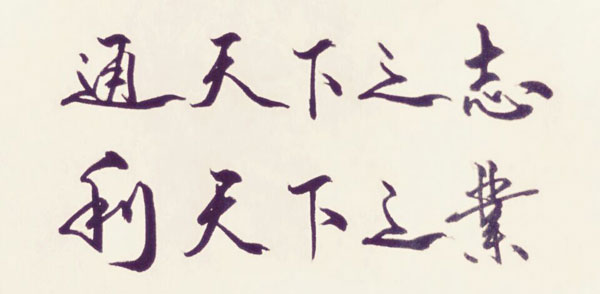 通天下之志
利天下之業